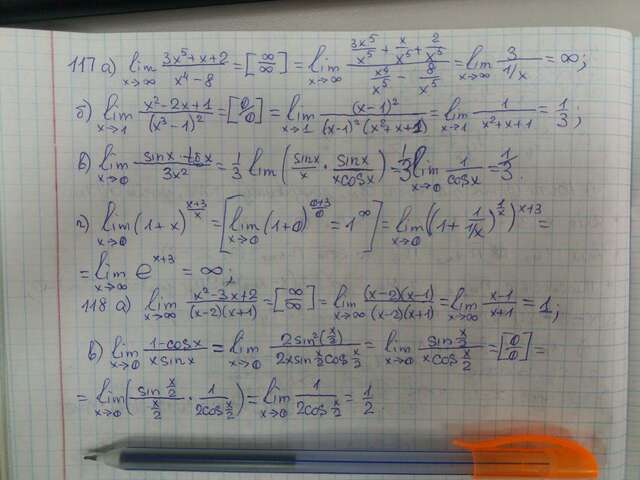 117 а) lim x→∞ (3x⁵+x+2)/(x⁴-8) = [∞/∞] = lim x→∞ (3x⁵/x⁵ + x/x⁵ + 2/x⁵)/(x⁴/x⁵ - 8/x⁵) = lim x→∞ 3/(1/x) = ∞;
б) lim x→1 (x²-2x+1)/(x³-1)² = [0/0] = lim x→1 (x-1)²/((x-1)²(x²+x+1)) = lim x→1 1/(x²+x+1) = 1/3;
в) lim x→0 (sinx · tgx)/(3x²) = 1/3 lim (sinx/x · sinx/(xcosx)) = 1/3 lim x→0 1/cosx = 1/3.
г) lim x→0 (1+x)^((x+3)/x) = [lim x→0 (1+0)^((0+3)/0) = 1^∞] = lim x→0 ((1 + 1/(1/x))^(1/x))^(x+3) =
= lim x→0 e^(x+3) = ∞;
118 а) lim x→∞ (x²-3x+2)/((x-2)(x+1)) = [∞/∞] = lim x→∞ ((x-2)(x-1))/((x-2)(x+1)) = lim x→∞ (x-1)/(x+1) = 1;
в) lim x→0 (1-cosx)/(xsinx) = lim x→0 (2sin²(x/2))/(2xsin x/2 cos x/2) = lim x→0 (sin x/2)/(xcos x/2) = [0/0] =
= lim x→0 ((sin x/2)/(x/2) · 1/(2cos x/2)) = lim x→0 1/(2cos x/2) = 1/2.